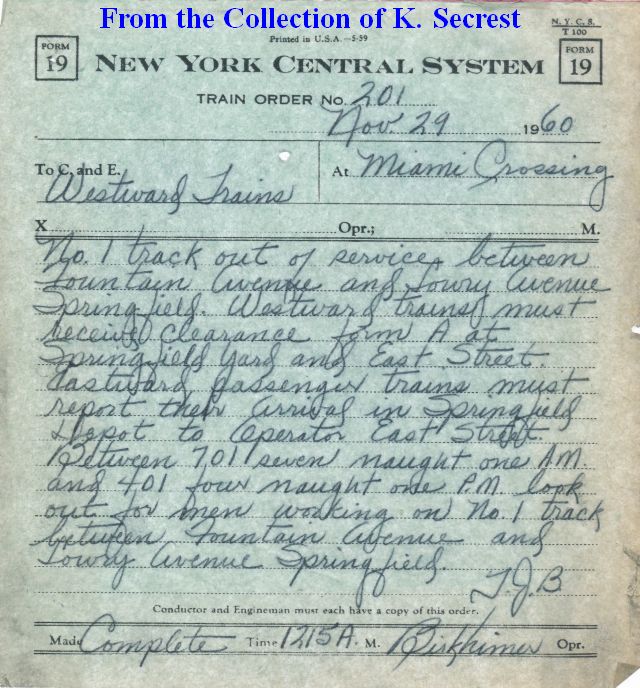 From the Collection of K. Secrest
N. Y. C. S.
T 100
Printed in U.S.A.—5-59
FORM
19
NEW YORK CENTRAL SYSTEM
FORM
19
TRAIN ORDER No. 201
Nov. 29 1960
To C. and E.
Westward Trains
At Miami Crossing
X Opr.; M.
No. 1 track out of service between
Fountain Avenue and Lowry Avenue
Springfield. Westward trains must
receive clearance form A at
Springfield Yard and East Street.
Eastward passenger trains must
report their arrival in Springfield
Depot to Operator East Street
Between 701 seven naught one AM
and 401 four naught one P.M. look
out for men working on No. 1 track
between Fountain Avenue and
Lowry Avenue Springfield.
T.J.B
Conductor and Engineman must each have a copy of this order.
Made Complete Time 1215A. M. Birkhimer Opr.